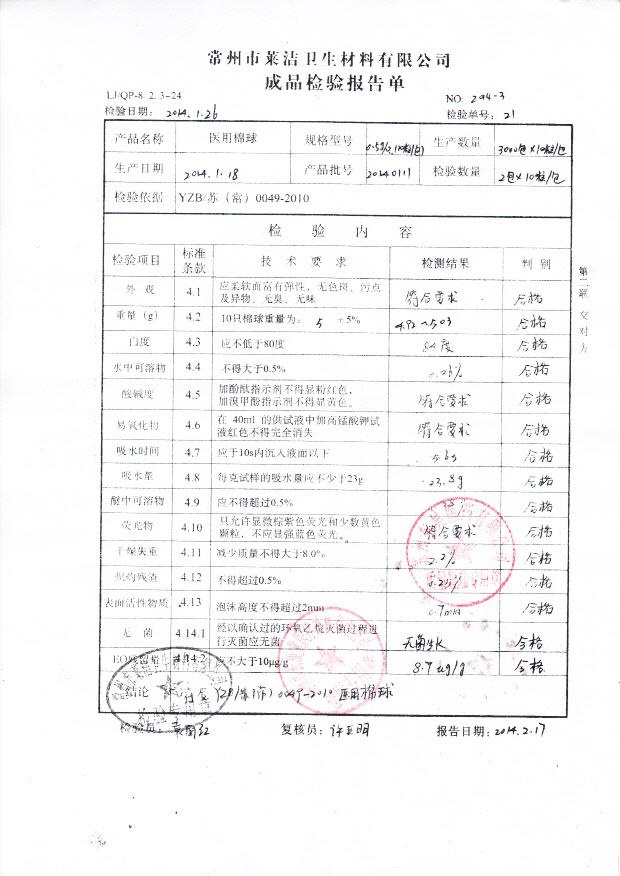 常州市莱洁卫生材料有限公司
成品检验报告单
LJ/QP-8.2.3-24
NO: 2014-3
检验日期: 2014.1.26
检验单号: 21
产品名称 医用棉球 规格型号 0.5g/只 10粒/包 生产数量 3000包×10粒/包
生产日期 2014.1.18 产品批号 20140111 检验数量 2包×10粒/包
检验依据 YZB/苏（常）0049-2010
检 验 内 容
检验项目 标准条款 技 术 要 求 检测结果 判 别
外 观 4.1 应柔软而富有弹性，无色斑、污点及异物、无臭、无味 符合要求 合格
重量（g） 4.2 10只棉球重量为: 5 ±5% 4.92~5.03 合格
白度 4.3 应不低于80度 84度 合格
水中可溶物 4.4 不得大于0.5% 合格
酸碱度 4.5 加酚酞指示剂不得显粉红色，加溴甲酚指示剂不得显黄色。 符合要求 合格
易氧化物 4.6 在 40ml 的供试液中加高锰酸钾试液红色不得完全消失 符合要求 合格
吸水时间 4.7 应于10s内沉入液面以下 合格
吸水量 4.8 每克试样的吸水量应不少于23g 23.8g 合格
醚中可溶物 4.9 应不得超过0.5% 合格
荧光物 4.10 只允许显微棕紫色荧光和少数黄色颗粒，不应显强蓝色荧光。 符合要求 合格
干燥失重 4.11 减少质量不得大于8.0% 2.2% 合格
炽灼残渣 4.12 不得超过0.5% 合格
表面活性物质 4.13 泡沫高度不得超过2mm 0.7mm 合格
无 菌 4.14.1 经以确认过的环氧乙烷灭菌过程进行灭菌应无菌 无菌生长 合格
EO残留量 4.14.2 应不大于10μg/g 8.7ug/g 合格
结论 符合 YZB/苏(常)0049-2010 医用棉球
检验员:
复核员: 许亚明
报告日期: 2014.2.17
第二联 交对方